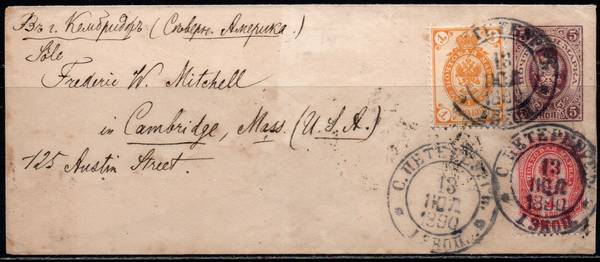 Въ г. Кембриджъ (Съверн. Америка.)
Söle
Frederic W. Mitchell
in Cambridge, Mass. (U.S.A.)
125 Austin Street.
1
1
5
5
5
13
ІЮЛ
1890
С. ПЕТЕРБУРГ.
13
ІЮЛ
1890
1 ЭКСП.
С. ПЕТЕРБУРГ.
13
ІЮЛ
1890
1 ЭКСП.